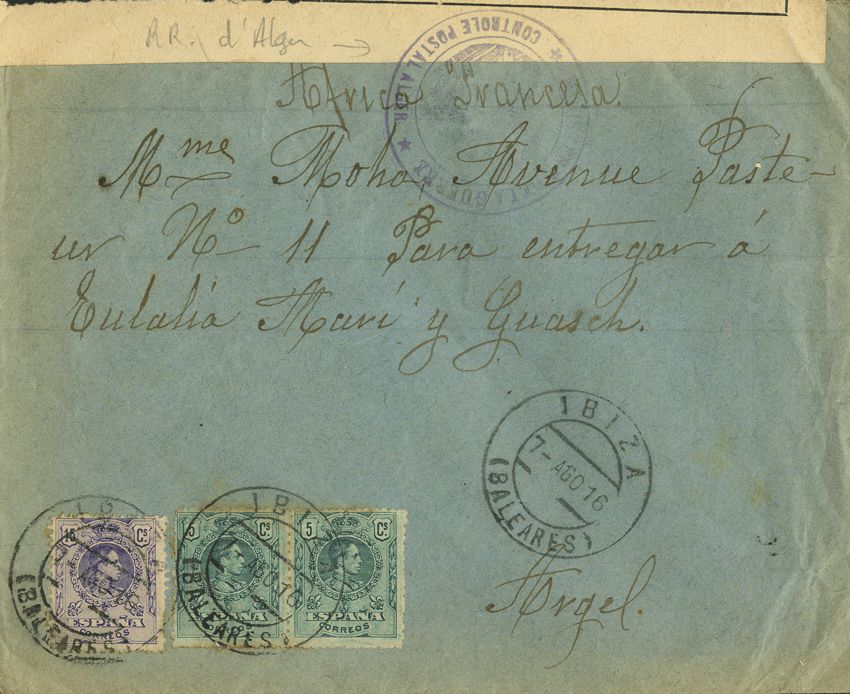 R.R. d'Alger →
★ CONTROLE POSTAL ALGER ★
GUERRE
Africa Francesa.
Mme Moha, Avenue Paste-
ur No 11 Para entregar á
Eulalia Marí y Guasch.
IBIZA
7-AGO16
(BALEARES)
Argel.
15 Cs
ESPAÑA
CORREOS
5 Cs
ESPAÑA
CORREOS
5 Cs
ESPAÑA
CORREOS
IBIZA
AGO16
(BALEARES)
(BALEARES)